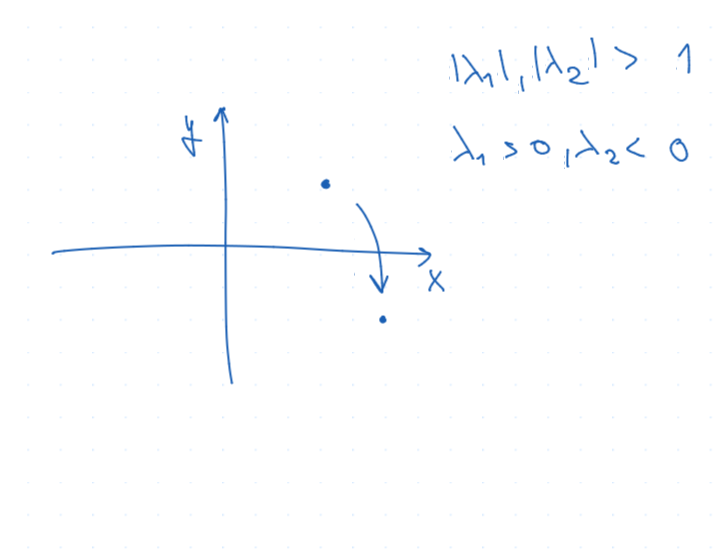 |λ₁|, |λ₂| > 1
y
λ₁ > 0, λ₂ < 0
x